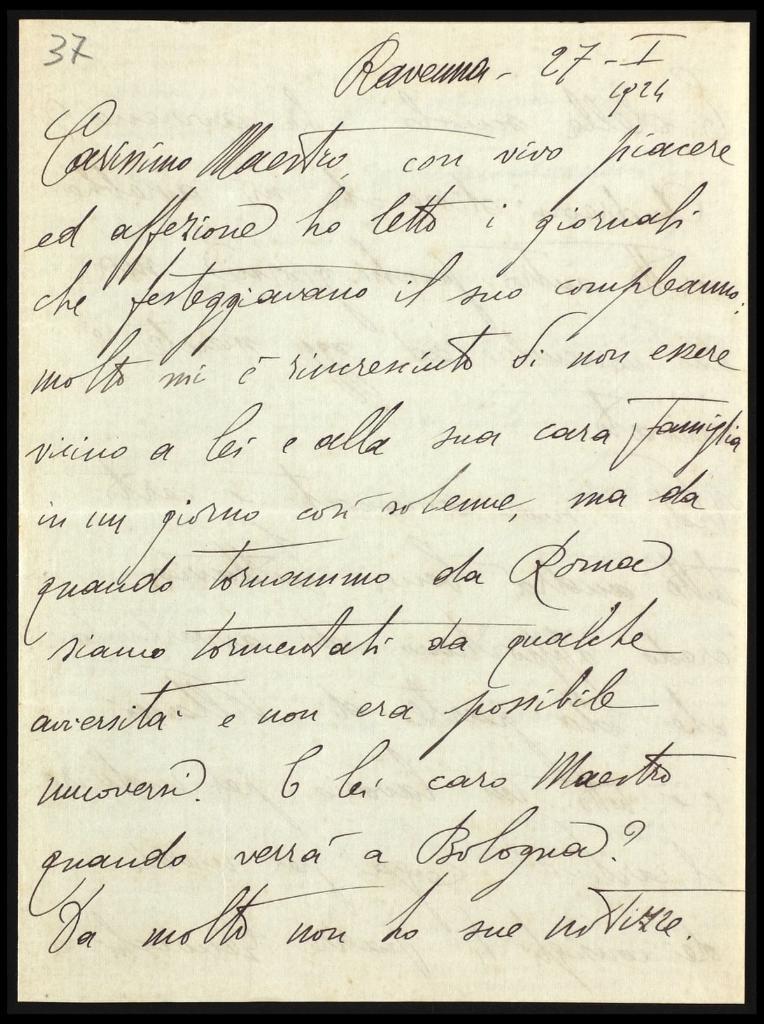 37
Ravenna - 27 - I
1924
Carissimo Maestro, con vivo piacere
ed affezione ho letto i giornali
che festeggiavano il suo compleanno;
molto mi è rincresciuto di non essere
vicino a lei e alla sua cara famiglia
in un giorno così solenne, ma da
quando tornammo da Roma
siamo tormentati da qualche
avversità e non era possibile
muoversi. E lei caro Maestro
quando verrà a Bologna?
Da molto non ho sue notizie.